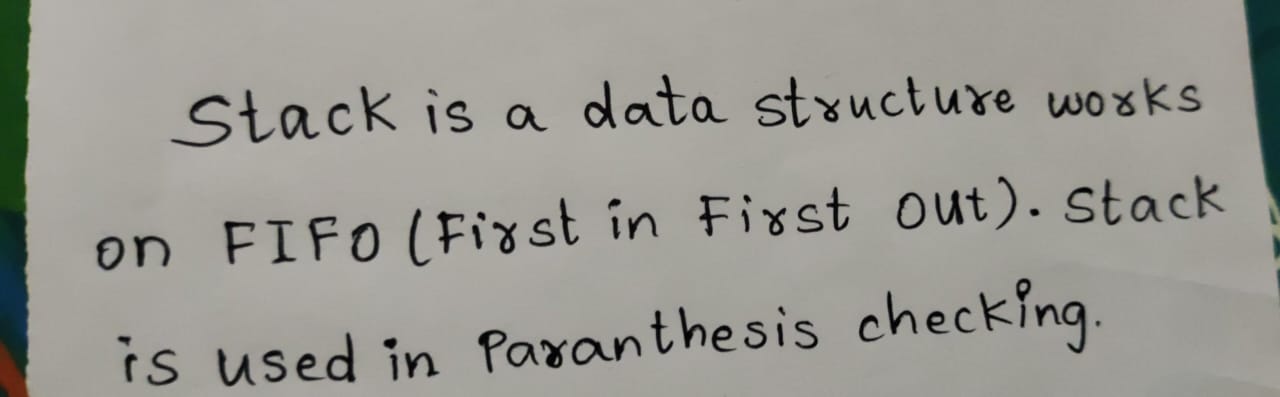 Stack is a data structure works
on FIFO (First in First out). Stack
is used in Paranthesis checking.